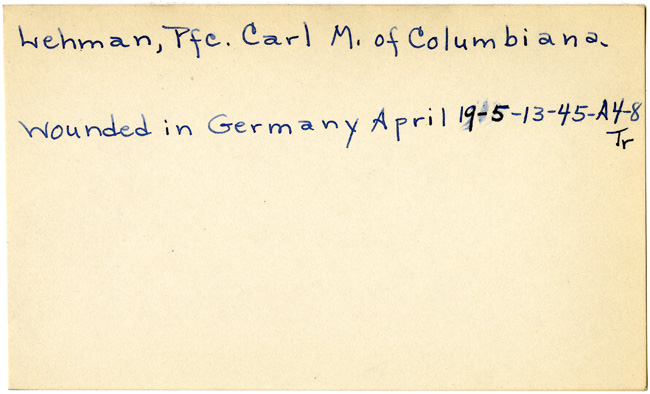 Lehman, Pfc. Carl M. of Columbiana.
Wounded in Germany April 19-5-13-45-A4-8
Tr